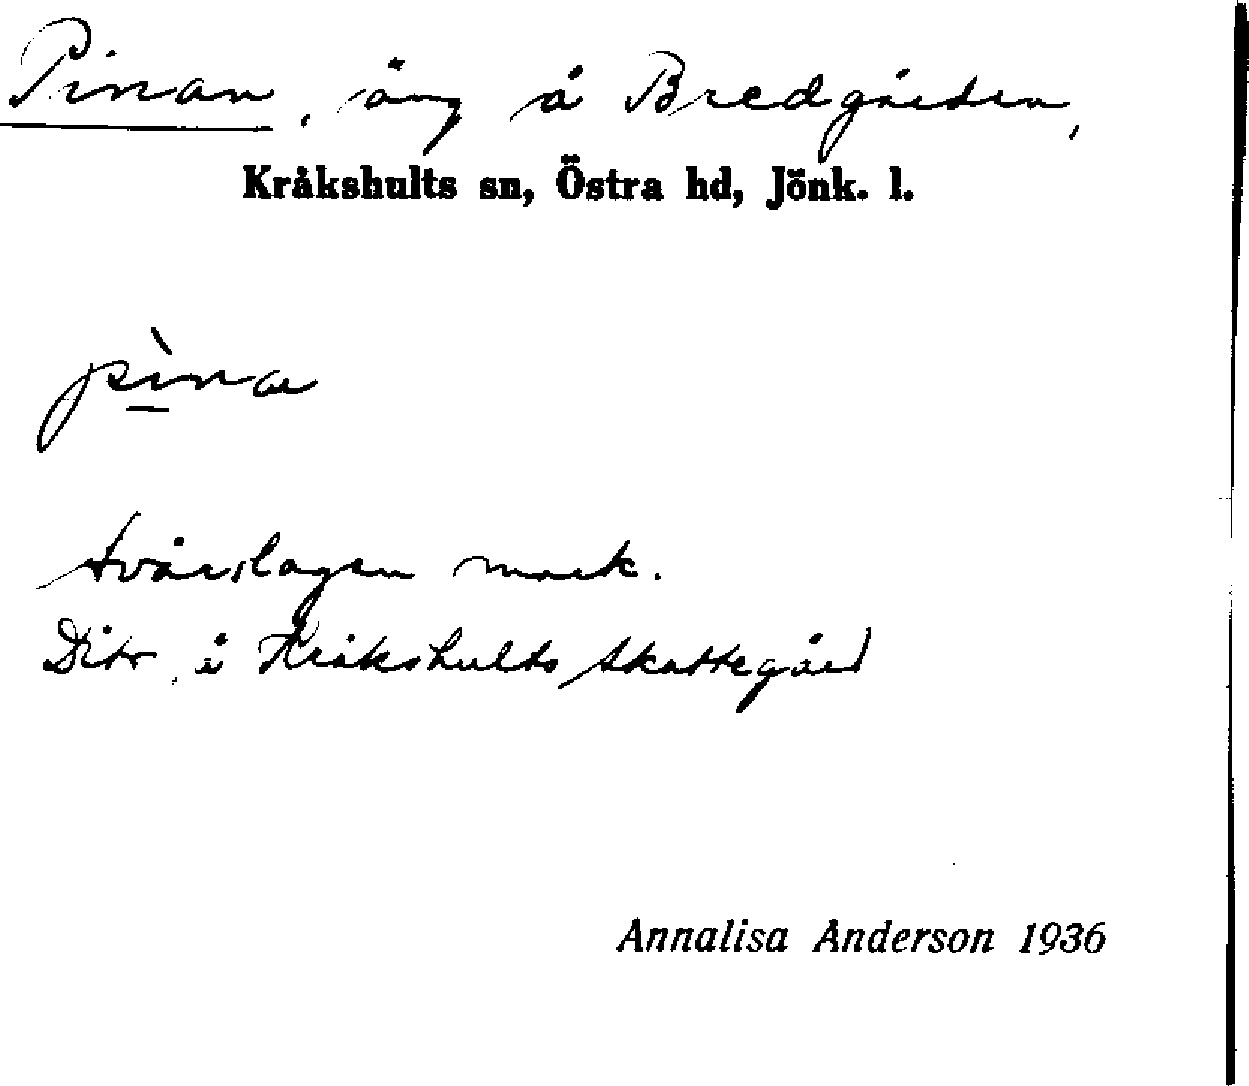 Pinan, äng å Bredgården,
Kråkshults sn, Östra hd, Jönk. l.
pìna
Svårslagen mark.
Dito å Kråkshults skattegård
Annalisa Anderson 1936